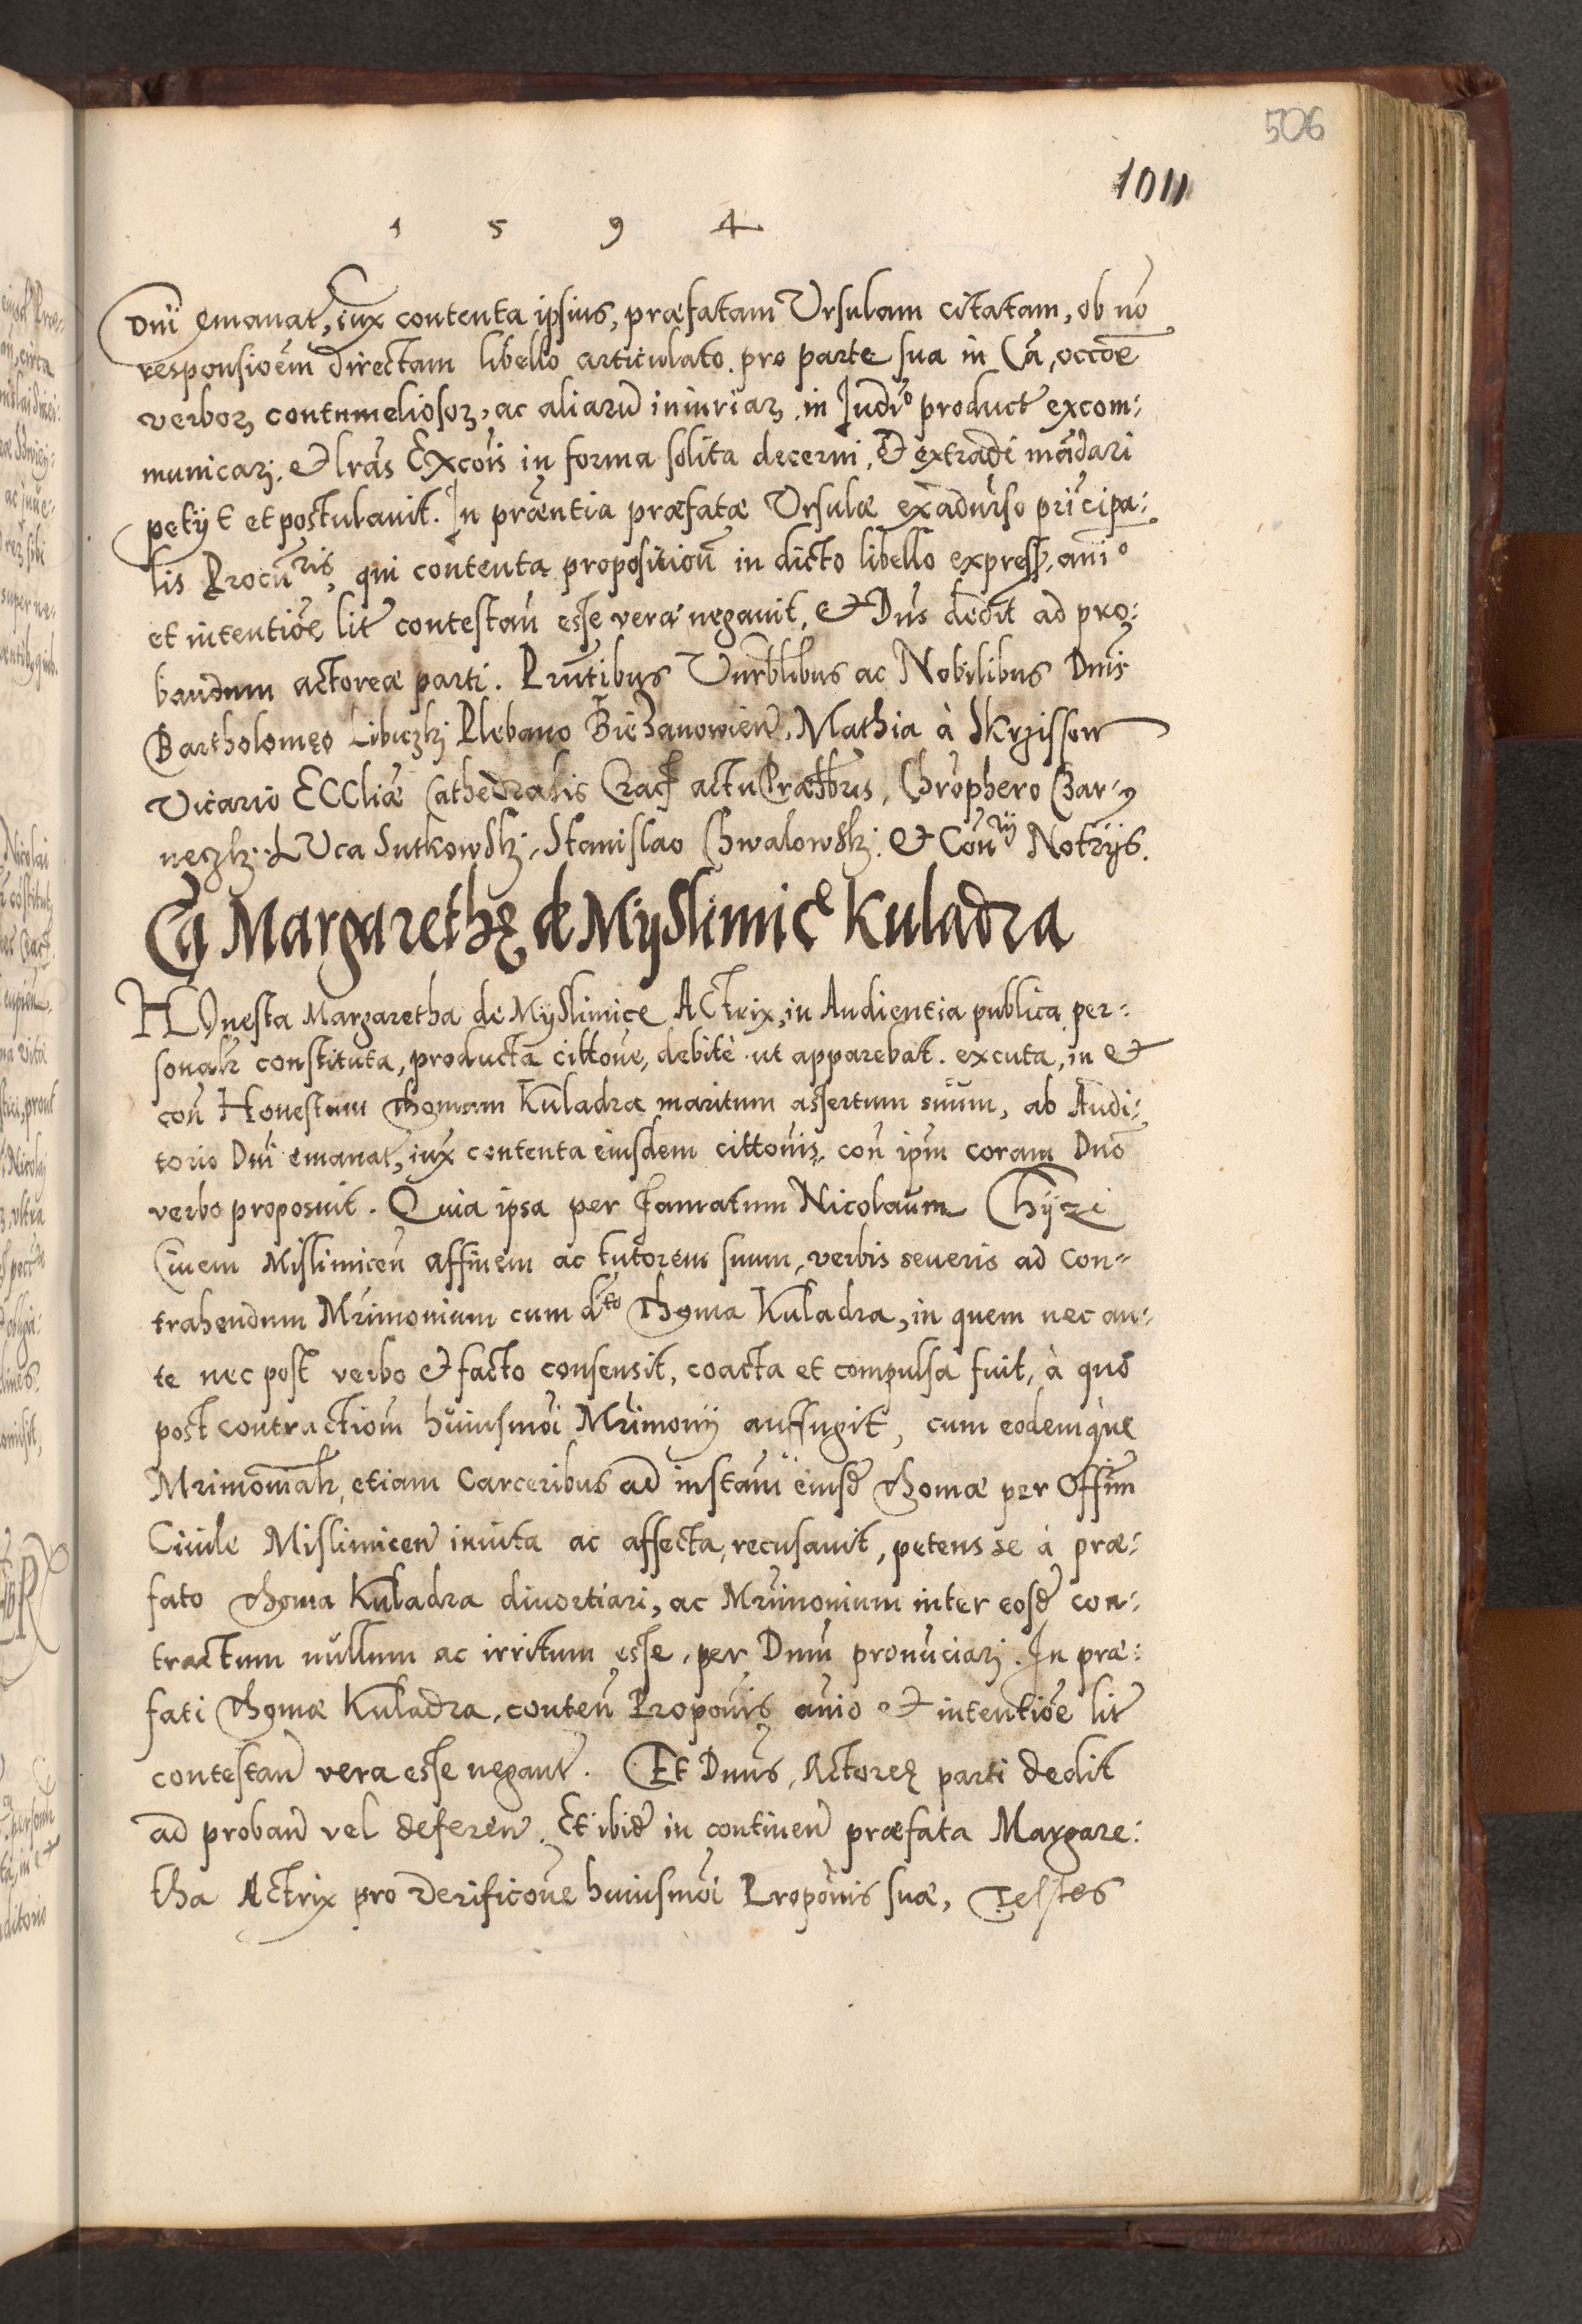 506
1011
1 5 9 4
Dni emanat, iux contenta ipsius, præfatam Ursulam citatam, ob no
responsioem directam libello articulato pro parte sua in Ca, occoe
verboꝝ contumeliosoꝝ, ac aliarū iniuriaꝝ in Judio product excom:
municarj. et lras Excois in forma solita decerni, et extradi mādari
petijt et postulavit. In præntia præfatæ Ursulæ exadurso pricipa:
lis Procuris, qui contenta propositiou in dicto libello express, anio
et intentioe lit contestau esse vera negavit, et Dns dedit ad pro:
bandum actoreæ parti. Pruntibus Vnrblibus ac Nobilibus Dnis
Bartholomęo Libiczkj Plebano Bieżanowien, Mathia à Skrzissow
Vicario ECCliæ Cathedralis Crac actu Præsbris, Chrophero Czar-
neczkj. LUca Sutkowskj, Stanislao Chwalowskj. et Conrij Notrijs.
Ca Margarethę de Myslimice Kuladra
HOnesta Margaretha de Myslimice ACtrix, in Audientia publica per:
sonalr constituta, producta cittone, debitè ut apparebat excuta, in et
con Honestum Thomam Kuladra maritum assertum suum, ab Audi:
torio Dni emanat, iux contenta eiusdem cittonis, con ipm coram Dno
verbo proposuit. Quia ipsa per famatum Nicolaum Chyzi
Civem Mislimiceń affinem ac tutorem suum, verbis severis ad con-
trahendum Mrimonium cum dto Thoma Kuladra, in quem nec an:
te nec post verbo et facto consensit, coacta et compulsa fuit, à quo
post contractiom huiusmoi Mrimonij auffugit, cum eodemque
Mrimonialr, etiam Carceribus ad instaui eiusd Thomæ per Offim
Civile Mislimicen invita ac affecta, recusavit, petens se à præ:
fato Thoma Kuladra divortiari, ac Mrimonium inter eosd con:
tractum nullum ac irritum esse, per Dnm pronuciarj. In præ:
fati Thomæ Kuladra, conten Proponis anio et intentioe lit
contestan vera esse negant. Et Dnus, Actoreę parti dedit
ad proban vel deferen. Et ibid in continen præfata Margare:
tha Actrix pro Verificoe huiusmoi Proponis suæ, Testes